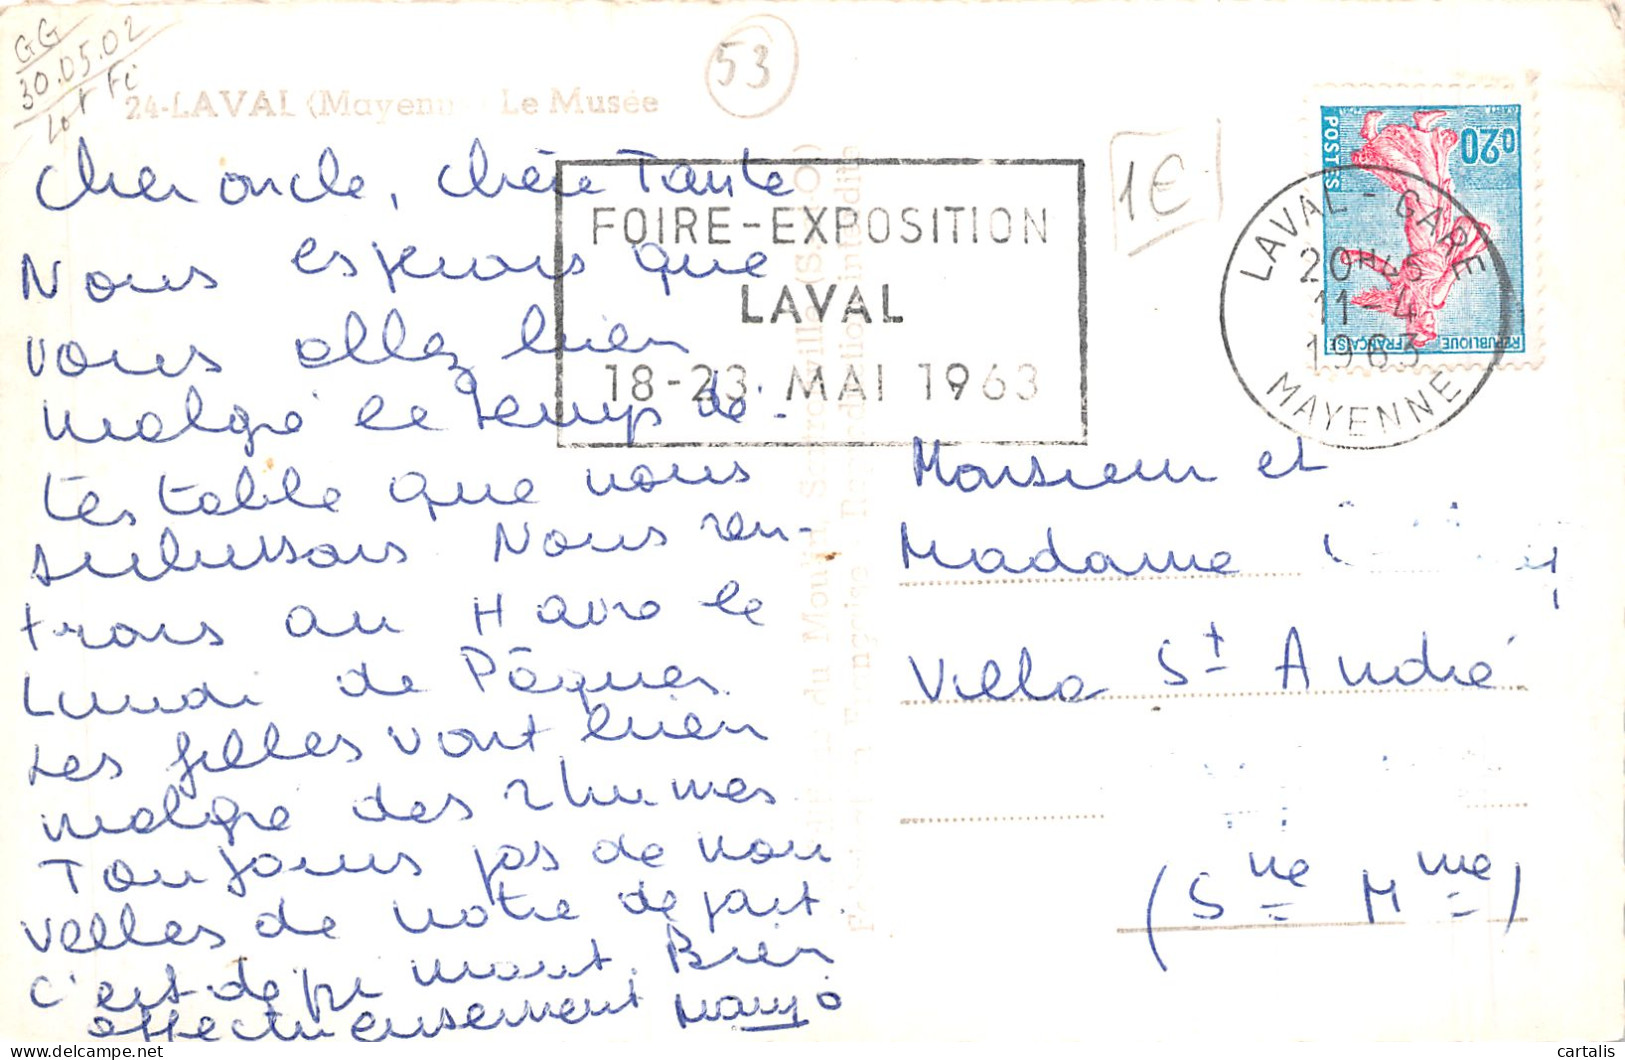 GG
30.05.02
Lot Fc
53
24-LAVAL (Mayenne) Le Musée
1€
0,20
POSTES
REPUBLIQUE FRANÇAISE
LAVAL - GARE
20H45
11-4
1963
MAYENNE
FOIRE-EXPOSITION
LAVAL
18-23 MAI 1963
Cher oncle, chère Tante
Nous esperons que
vous allez bien
malgré le temps dé-
testable que nous
subissons Nous ren-
trons au Havre le
Lundi de Pâques.
Les filles vont bien
malgré des rhumes
Toujours pas de nou
velles de notre départ.
c'est deprimant. Bien
affectueusement
Monsieur et
Madame
Villa St André
(Sne Mme)
cartalis